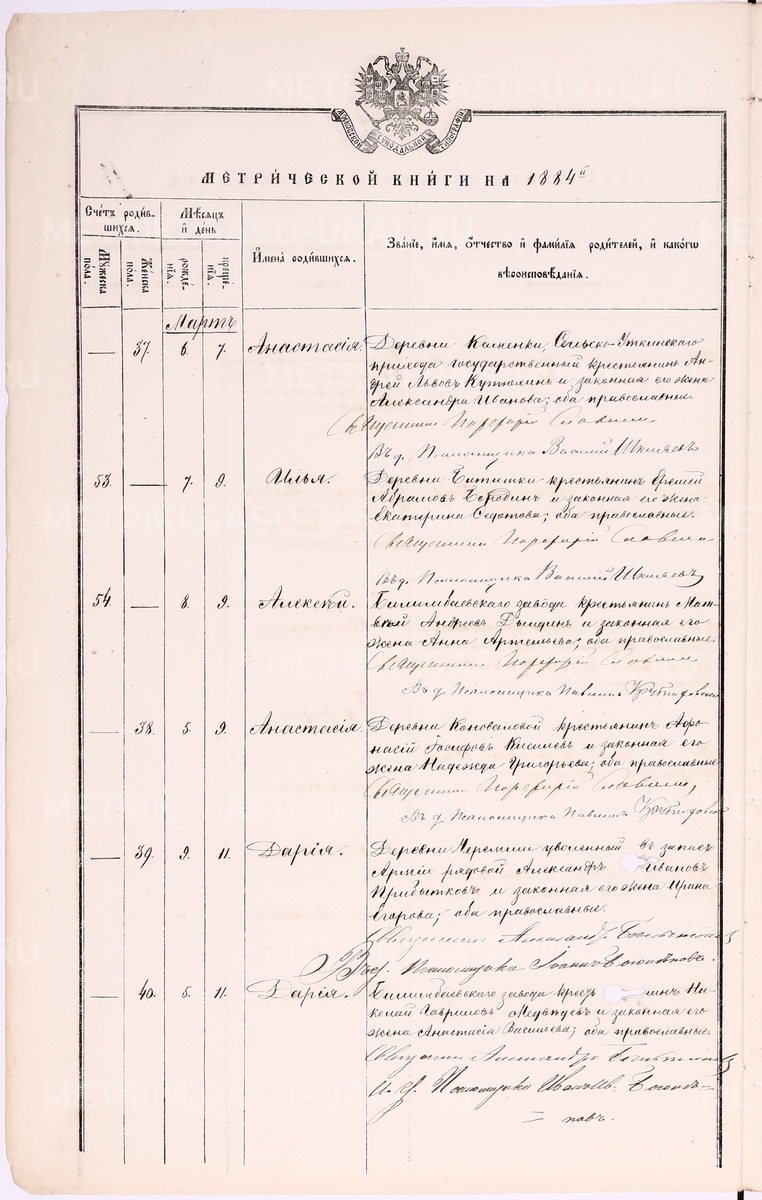 МОСКОВСКОЙ СѴНОДАЛЬНОЙ ТИПОГРАФІИ
МЕТРИ́ЧЕСКОЙ КНИ́ГИ НА 1884й
Сче́тъ роди́в-
шихся.
Му́жеска
по́ла.
Же́нска
по́ла.
Мѣ́сяцъ
и҆ де́нь
рожде́-
нія.
креще́-
нія.
И҆мена̀ роди́вшихся.
Зва́ніе, и҆́мя, ѻ҆́тчество и҆ фами́лїя роди́телей, и҆ како́гѡ
вѣроисповѣ́данія.
Мартъ
— 37. 6. 7. Анастасія.
Деревни Каменки, Сельско-Уткинскаго
прихода государственный крестьянинъ Ан-
дрей Львовъ Кутюхинъ и законная его жена
Александра Иванова; оба православные.
Священникъ Порфирій Славнинъ
Въ д. Псаломщика Василій Шкляевъ
53. — 7. 9. Илья.
Деревни Битимки крестьянинъ Ермей
Абрамовъ Бородинъ и законная его жена
Екатерина Федотова; оба православные.
Священникъ Порфирій Славнинъ
Въ д. Псаломщика Василій Шкляевъ
54. — 8. 9. Алексѣй.
Билимбаевскаго завода крестьянинъ Мат-
вей Андреевъ Дылдинъ и законная его
жена Анна Артемьева; оба православные.
Священникъ Порфирій Славнинъ
Въ д. Псаломщика Павелъ
— 38. 5. 9. Анастасія.
Деревни Коноваловой крестьянинъ Афо-
насій Іосифовъ Киселевъ и законная его
жена Надежда Григорьева; оба православные
Священникъ Порфирій Славнинъ,
Въ д. Псаломщика Павелъ
— 39. 9. 11. Дарія.
Деревни Черемши уволенный въ запасъ
Арміи рядовой Александръ Ивановъ
Прибытковъ и законная его жена Ирина
Егорова; оба православные.
Священникъ Александръ
Въ д. Псаломщика Іоаннъ Богомоловъ.
— 40. 5. 11. Дарія.
Билимбаевскаго завода крестьянинъ Ни-
колай Гавриловъ Медвѣдевъ и законная его
жена Анастасія Васильева; оба православные.
Священникъ Александръ
И. д. Псаломщика Иванъ
=новъ.